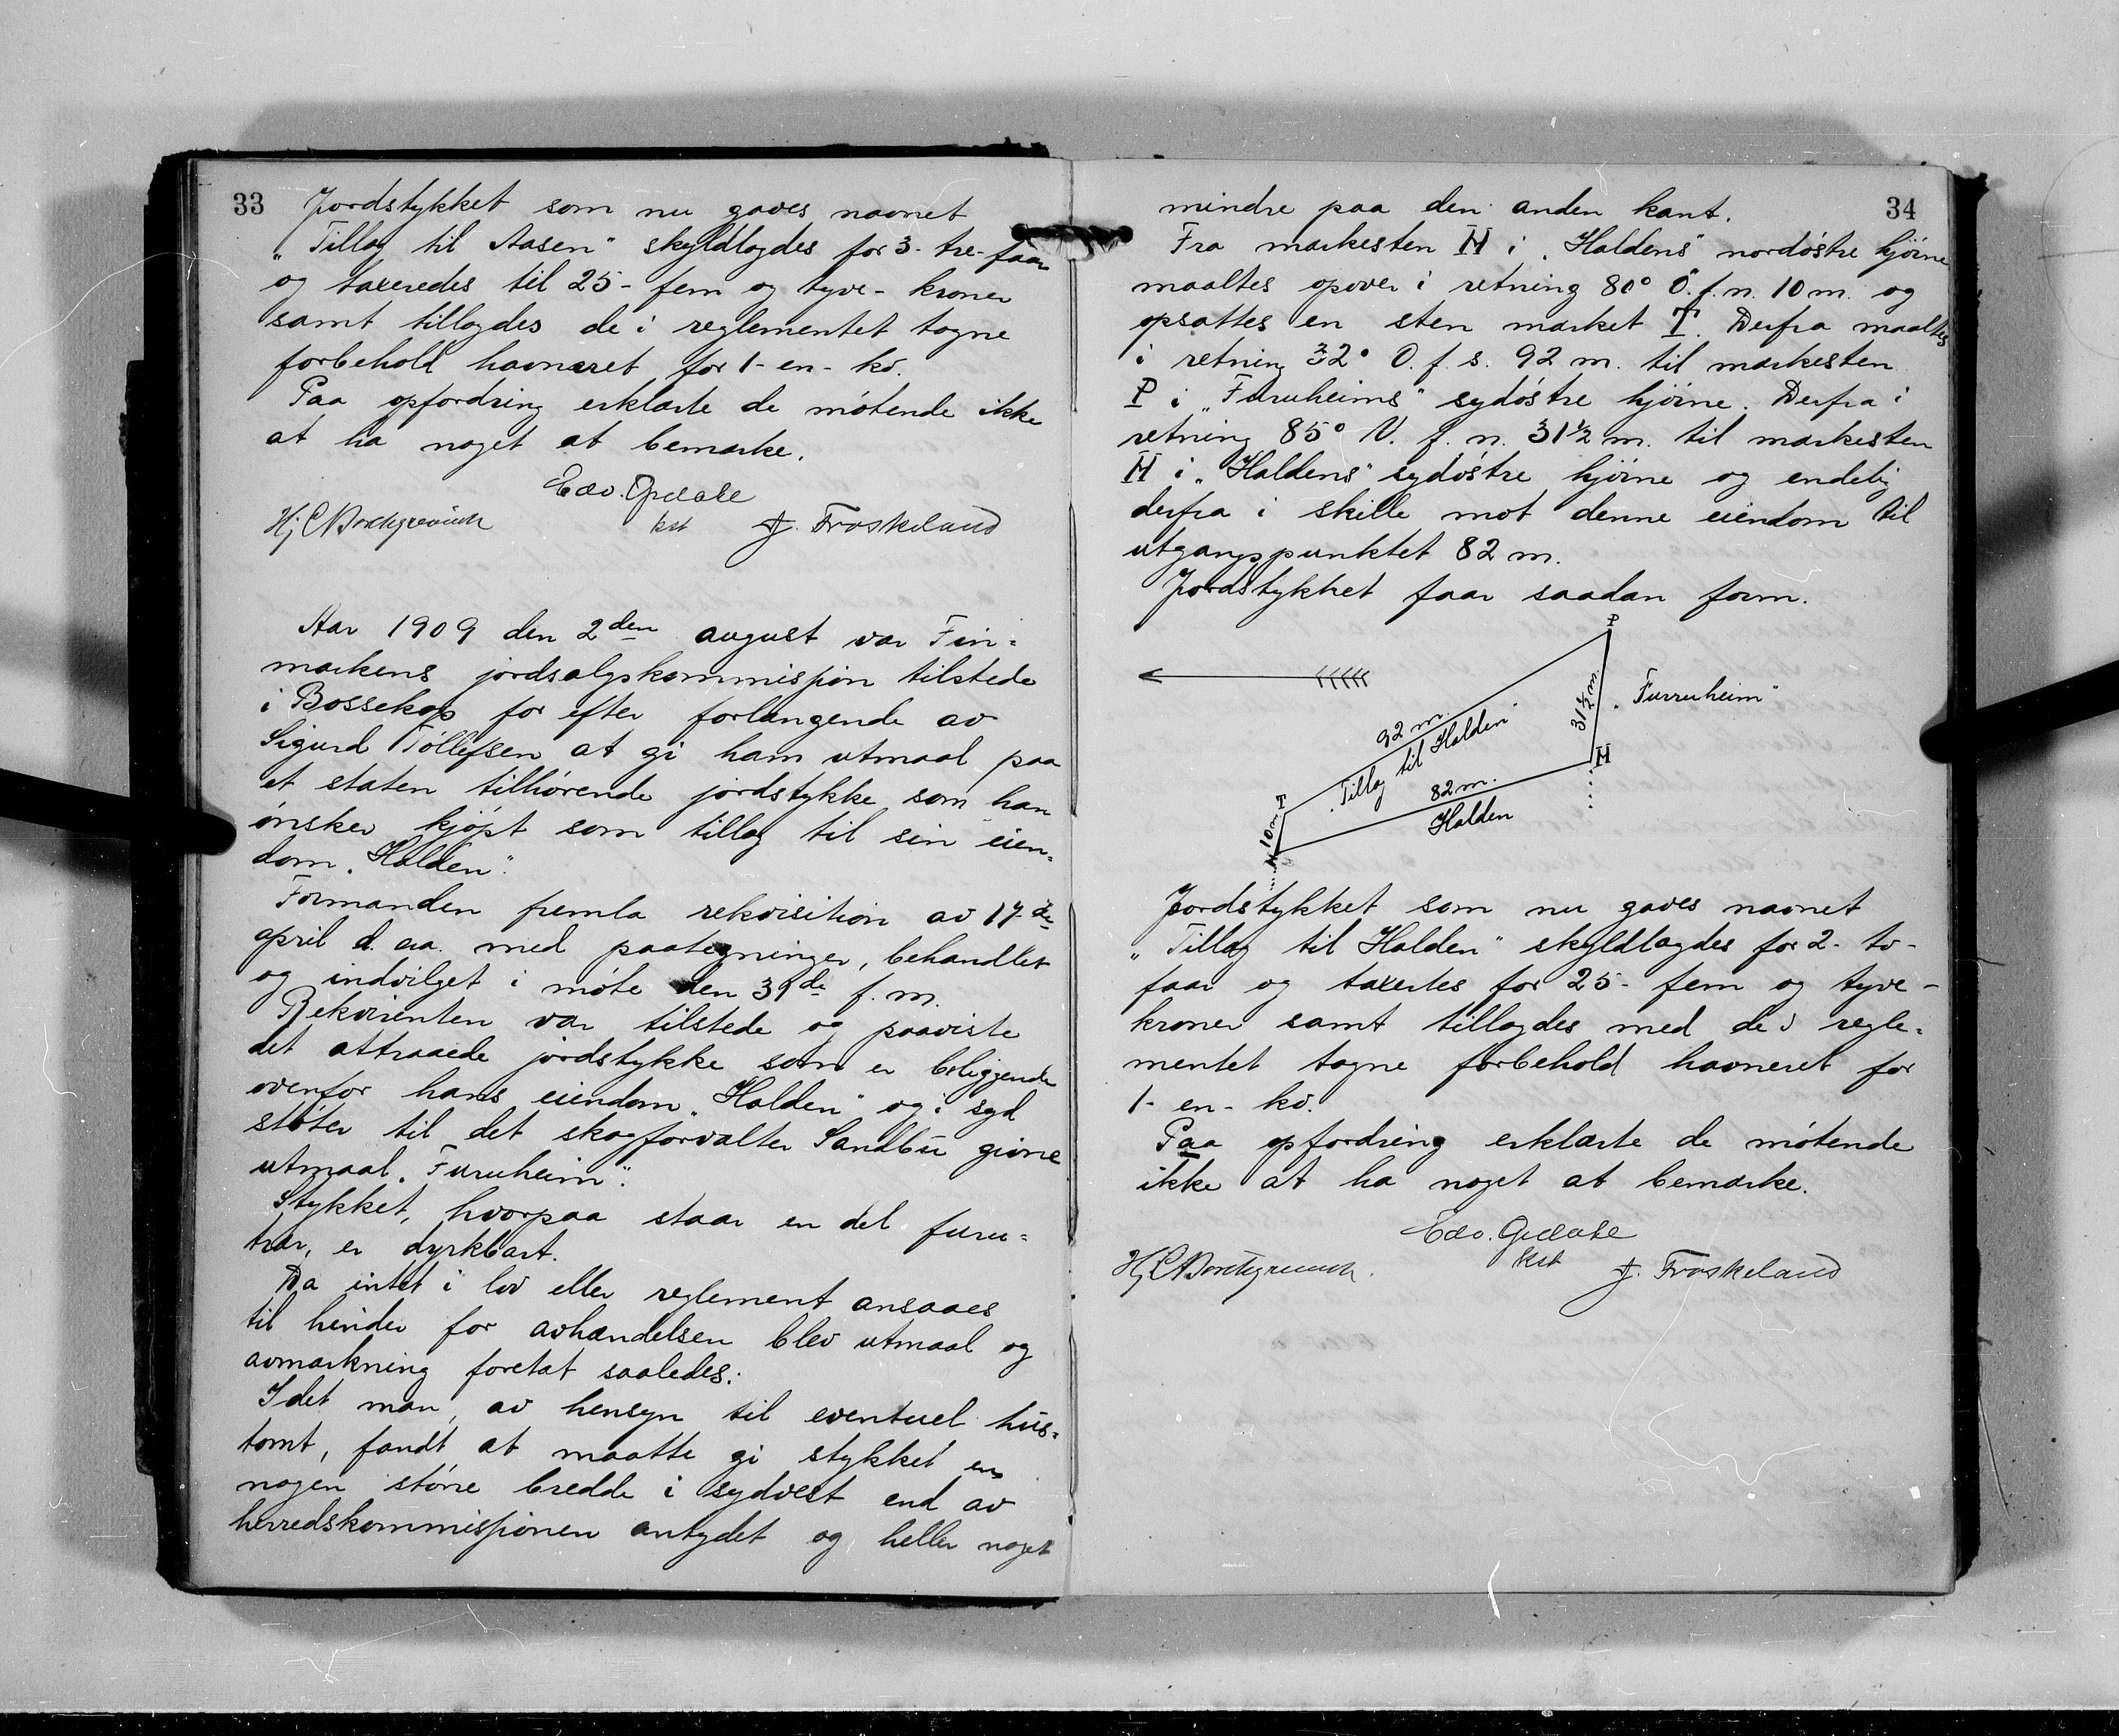 33
Jordstykket som nu gaves navnet
„Tillæg til Aasen" skyldlagdes for 3 - tre - faar
og taxeredes til 25 - fem og tyve - kroner
samt tillagdes de i reglementet tagne
forbehold havneret for 1 - en - ko.
Paa opfordring erklærte de møtende ikke
at ha noget at bemærke.
Edv.
Hj. C Borchgrevink kst J. Fraskeland
Aar 1909 den 2den august var Fin=
markens jordsalgskommission tilstede
i Bossekop for efter forlangende av
Sigurd Tollefsen at gi ham utmaal paa
et staten tilhørende jordstykke som han
ønsker kjøpt som tillæg til sin eien=
dom „Halden".
Formanden fremla rekvisition av 17de
april d. aa. med paategninger, behandlet
og indvilget i møte den 31de f. m.
Rekvirenten var tilstede og paaviste
det attraaede jordstykke som er beliggende
ovenfor hans eiendom „Halden" og i syd
støter til det skogforvalter Sandbu givne
utmaal „Furuheim".
Stykket, hvorpaa staar en del furu=
trær, er dyrkbart.
Da intet i lov eller reglement ansaaes
til hinder for avhændelsen blev utmaal og
avmærkning foretat saaledes:
Idet man, av hensyn til eventuel hus=
tomt, fandt at maatte gi stykket en
nogen større bredde i sydvest end av
herredskommissionen antydet og heller noget
34
mindre paa den anden kant.
Fra merkesten H i „Haldens" nordøstre hjørne
maaltes opover i retning 80° Ø. f. n. 10 m. og
opsattes en sten merket T. Derfra maaltes
i retning 32° O. f. s. 92 m. til merkesten
P i „Furuheims" sydøstre hjørne. Derfra i
retning 85° V. f. n. 31½ m. til merkesten
H i „Haldens" sydøstre hjørne og endelig
derfra i skille mot denne eiendom til
utgangspunktet 82 m.
Jordstykket faar saadan form.
P
31½ m.
„Furruheim"
92 m.
„Tillæg til Halden"
H
82 m.
Halden
T
10 m.
H
Jordstykket som nu gaves navnet
„Tillæg til Halden" skyldlagdes for 2 - to -
faar og taxertes for 25 - fem og tyve -
kroner samt tillagdes med de i regle=
mentet tagne forbehold havneret for
1 - en - ko.
Paa opfordring erklærte de møtende
ikke at ha noget at bemærke.
Edv.
Hj. C Borchgrevink. kst J. Fraskeland